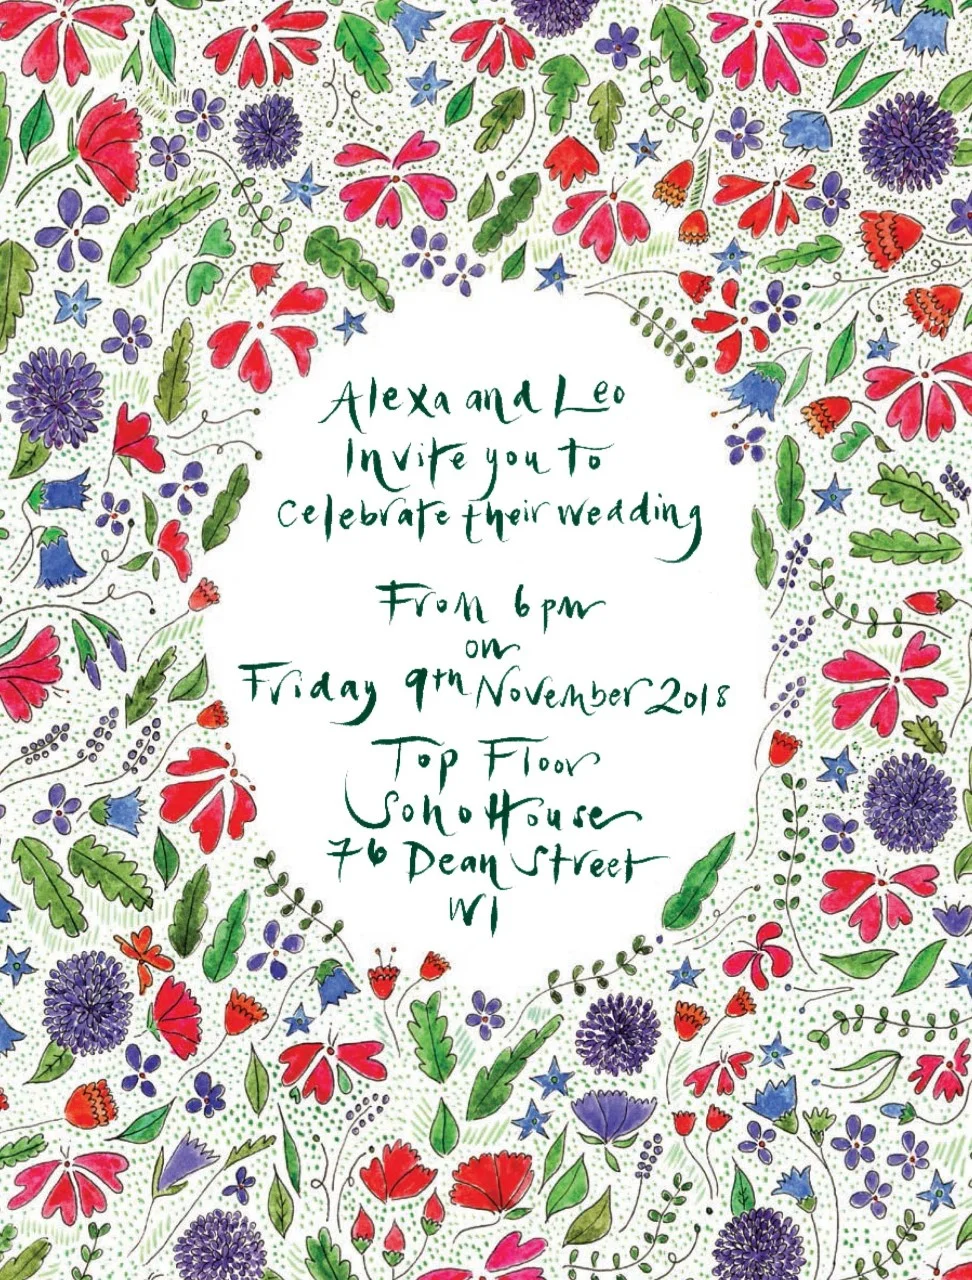 Alexa and Leo
Invite you to
celebrate their wedding
From 6pm
on
Friday 9th November 2018
Top Floor
Soho House
76 Dean Street
W1